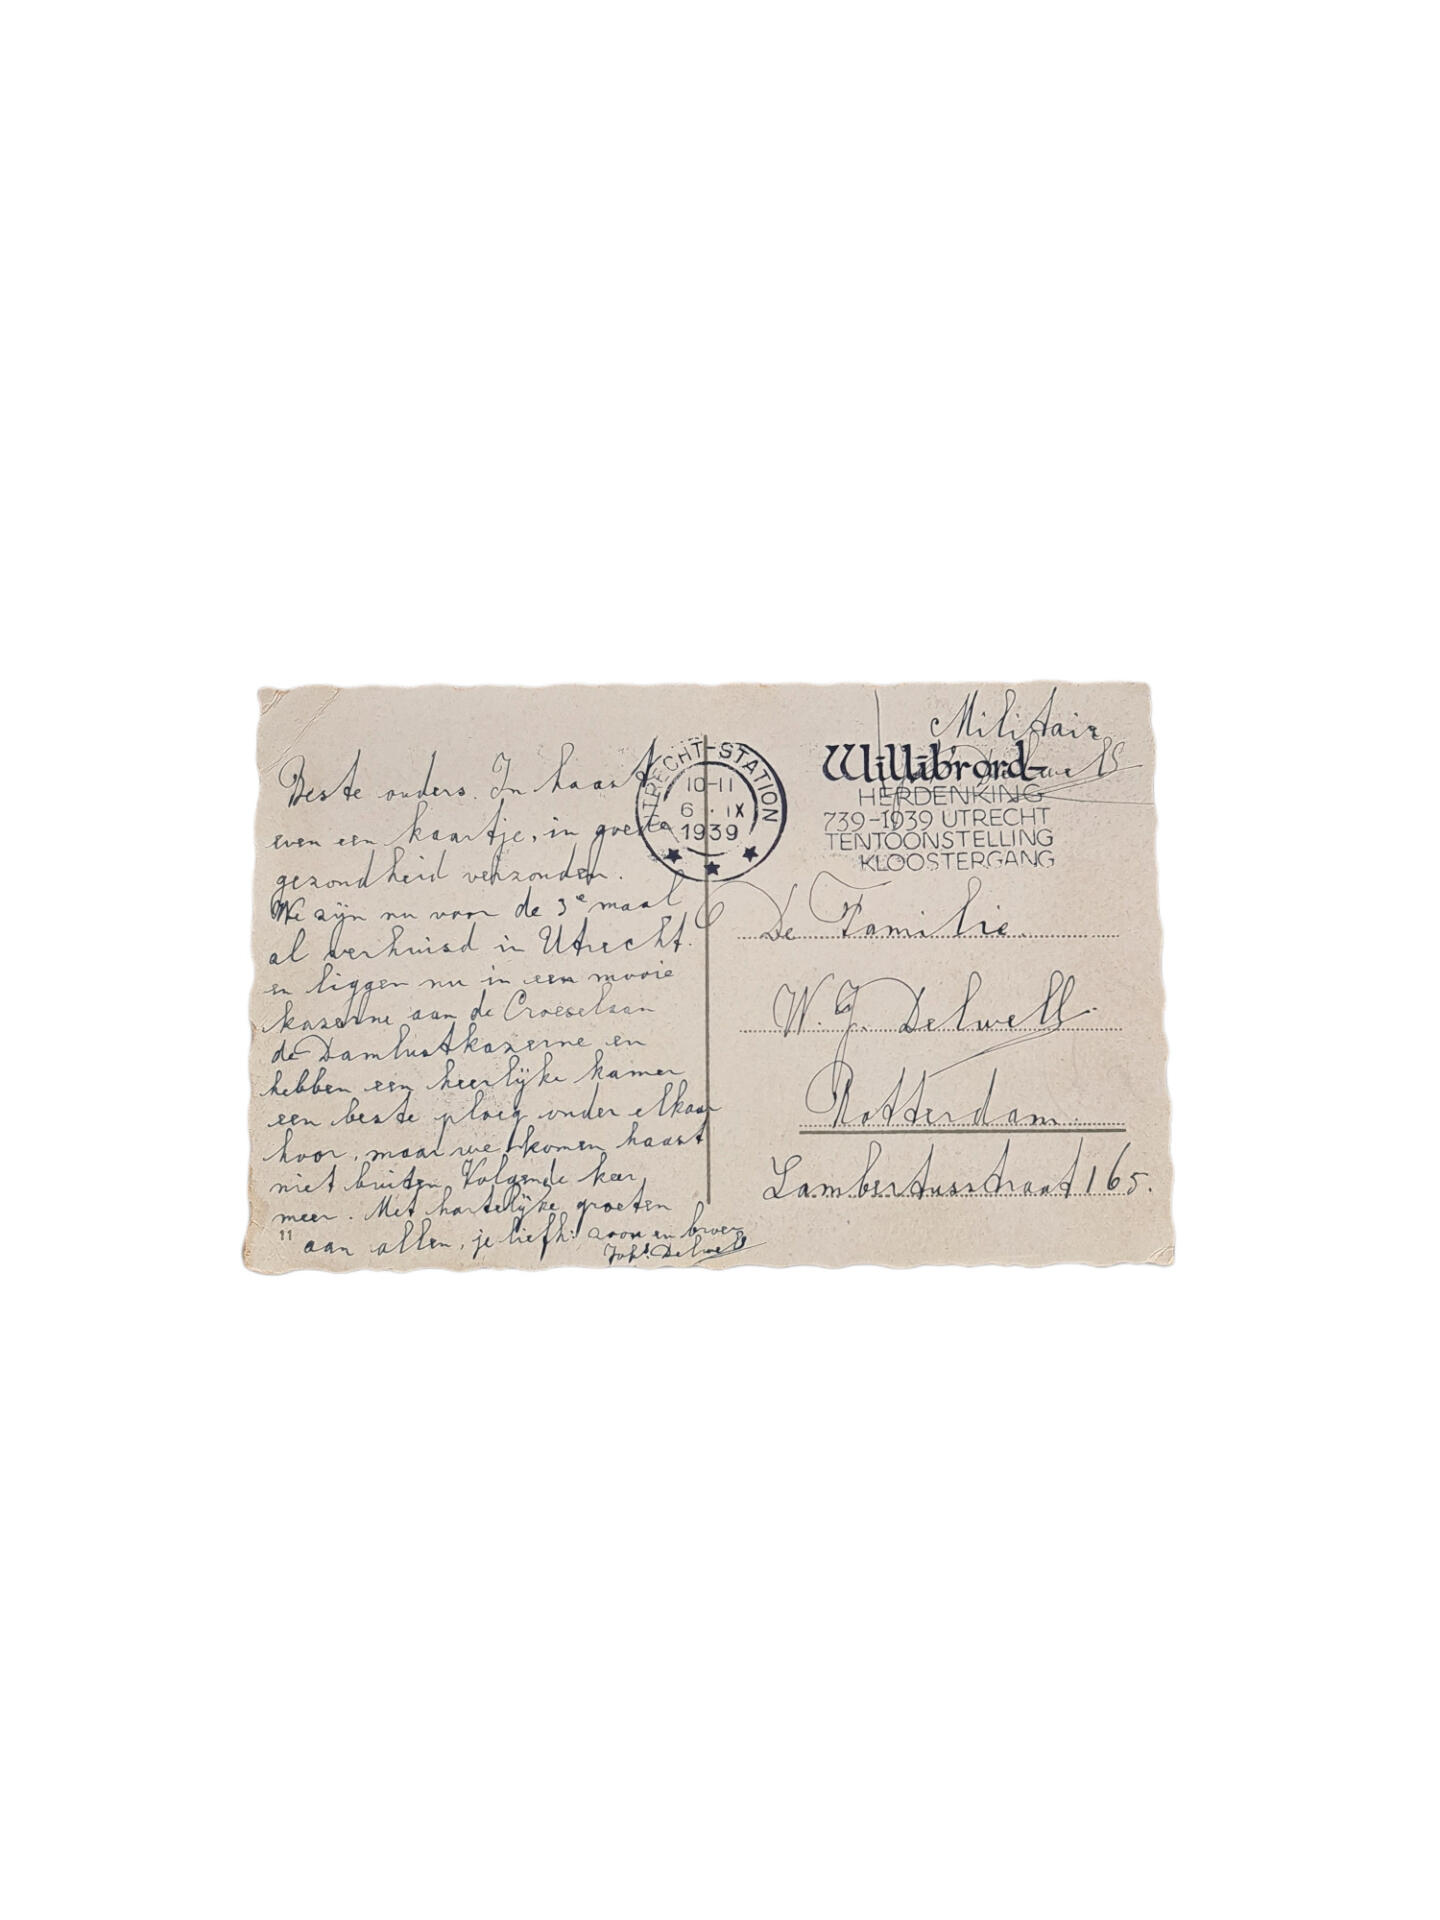 Beste ouders. In haast
even een kaartje, in goede
gezondheid verzonden.
We zijn nu voor de 3e maal
al verhuisd in Utrecht.
en liggen nu in een mooie
kazerne aan de Croeselaan
de Damlustkazerne en
hebben een heerlijke kamer
een beste ploeg onder elkaar
hoor, maar we komen haast
niet buiten Volgende keer
meer. Met hartelijke groeten
aan allen, je liefh: zoon en broer
Johs. Delwell
11
UTRECHT-STATION
10-11
6 . IX
1939
Militair
Delwell
Willibrord-
HERDENKING
739-1939 UTRECHT
TENTOONSTELLING
KLOOSTERGANG
De Familie.
W. J. Delwell.
Rotterdam.
Lambertusstraat 165.